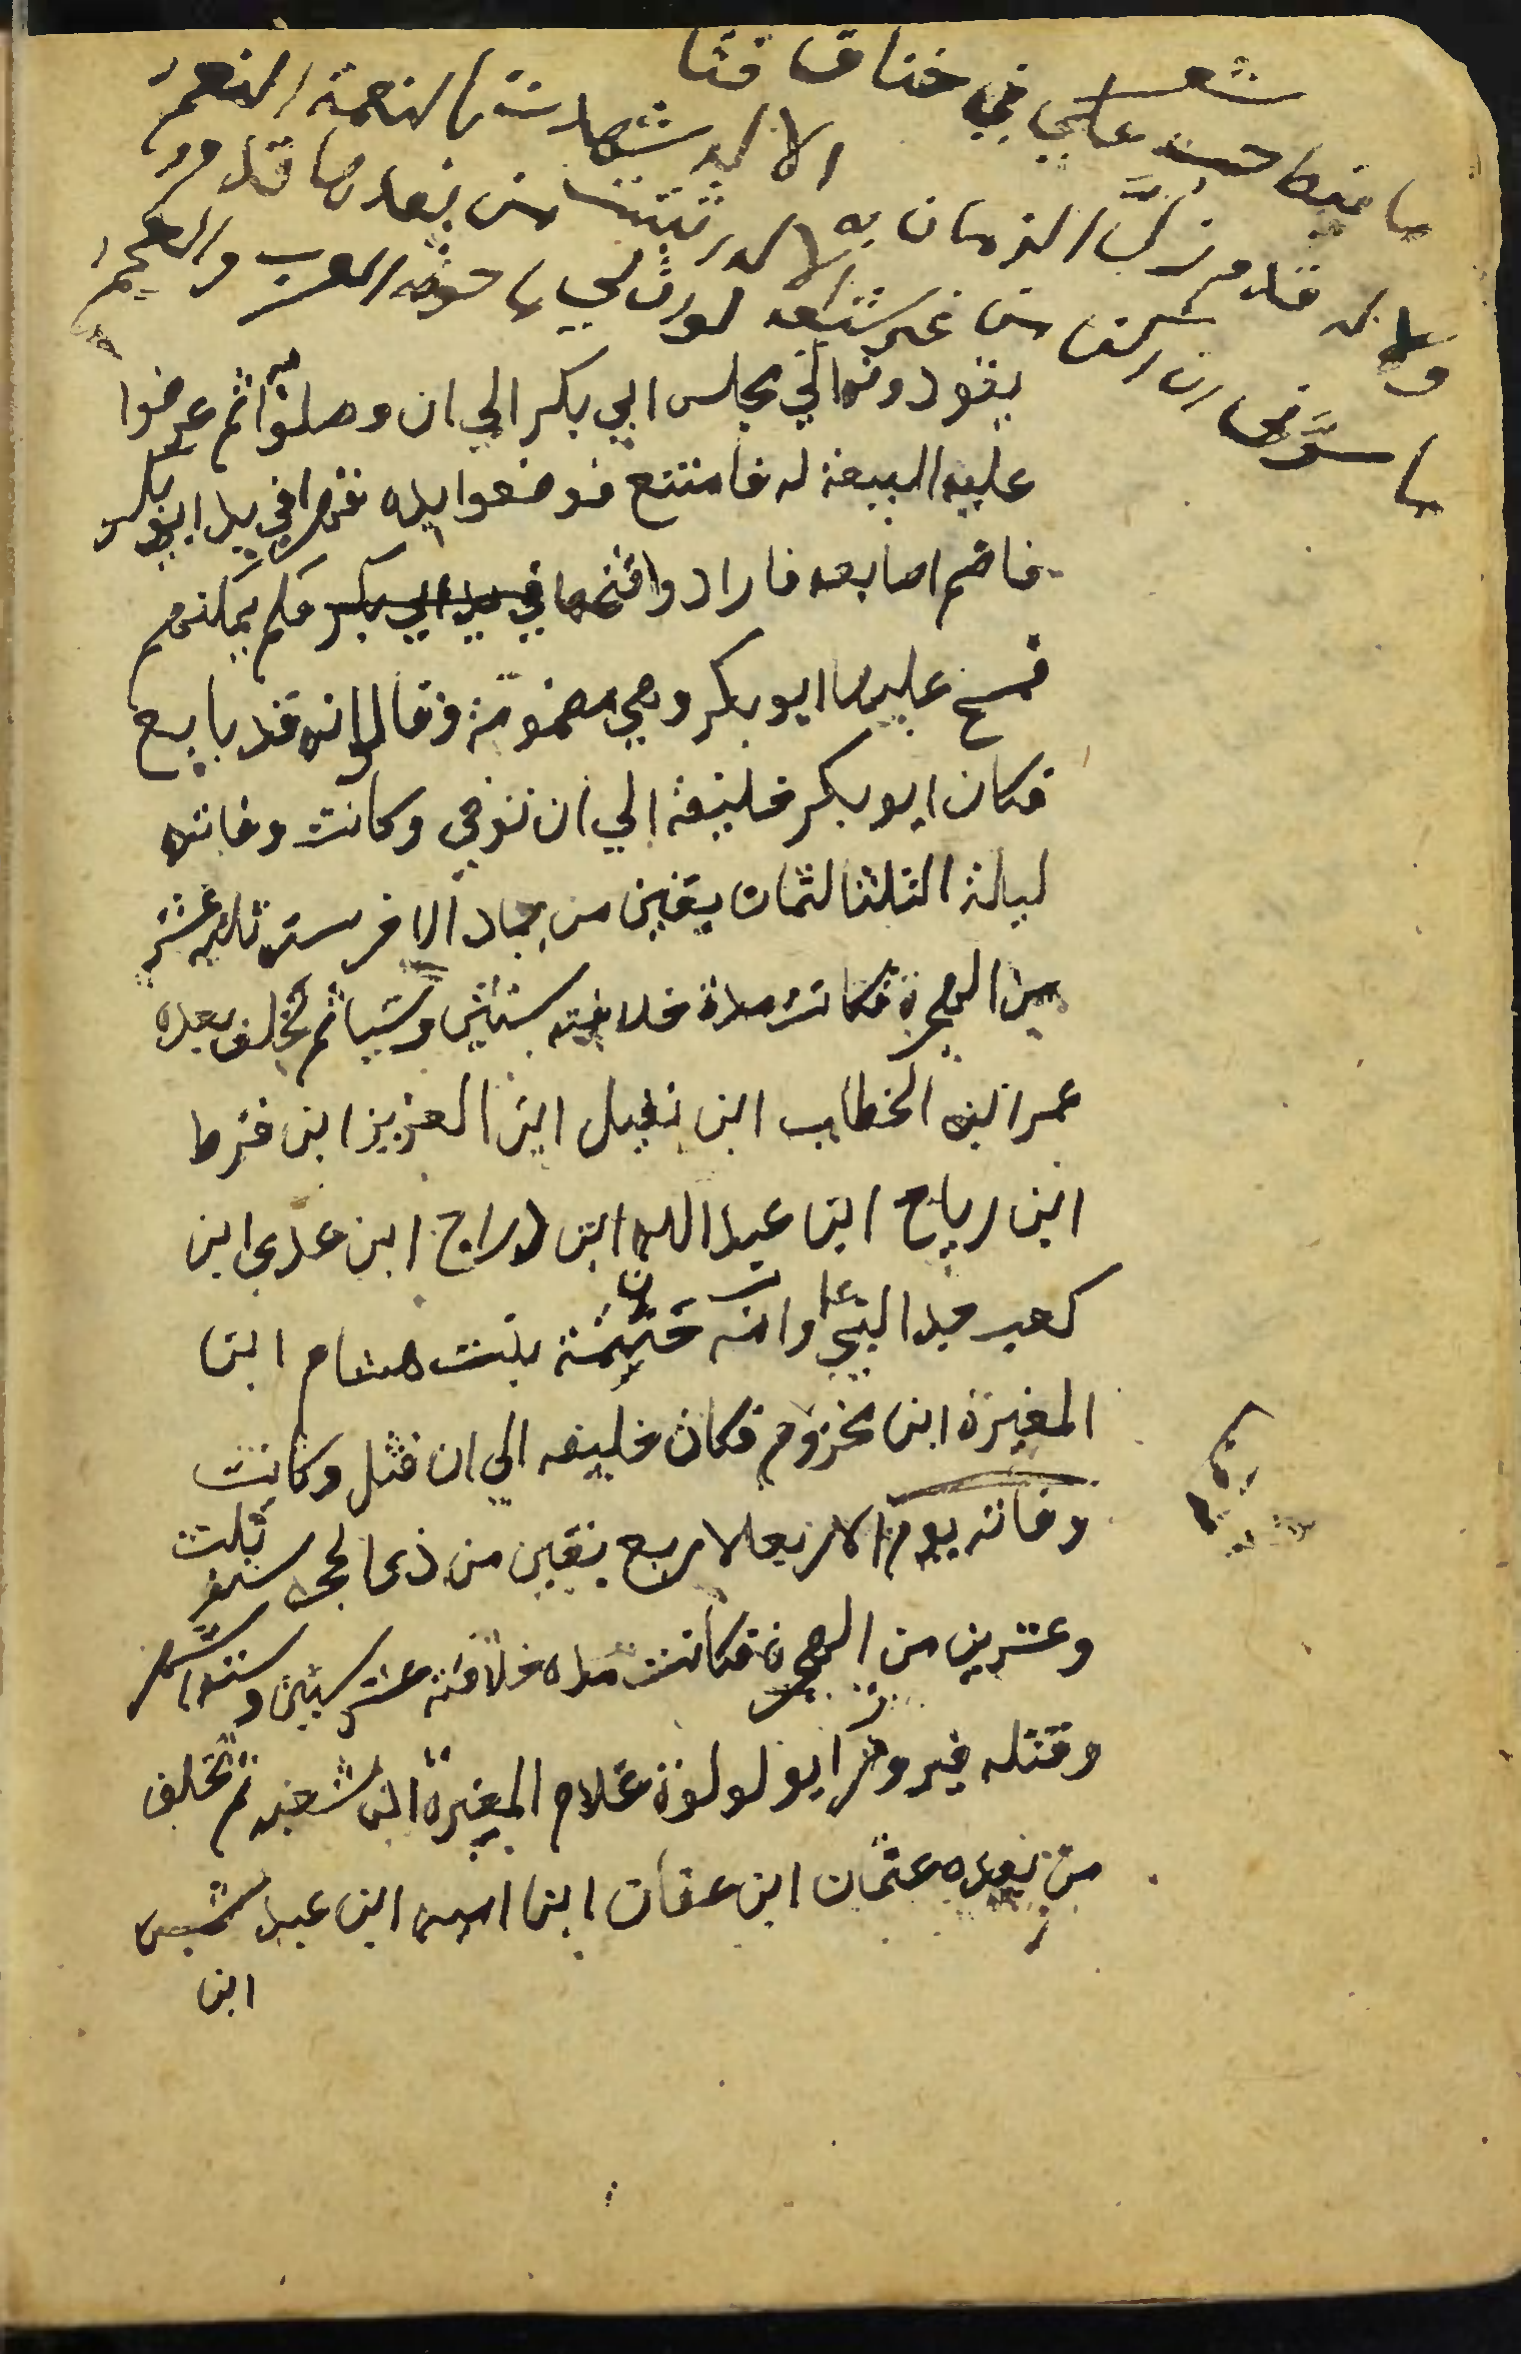 شعر
ما غبطا علي في خناق فتا
الا اليد شهدت بالنعمة النعم
ولا له قدم زل الزمان به
الا له ثبتت من بعدها قدم
ما سرني ان اكن من غير شيعته
لو ان لي ما حوته العرب والعجم
يقودونه الي مجلس ابي بكر الي ان وصلوا به ثم عرضوا
عليه البيعة له فامتنع فوضعوا يده غصبا في يد ابو بكر
فاضم اصابعه فارادوا فتحها في يد ابي بكر فلم يمكنهم
فمسح عليها ابو بكر وهي مضمومة وقالوا انه قد بايع
فكان ابو بكر خليفة الي ان توفي وكانت وفاته
ليلة الثلثا لثمان بقين من جماد الاخر سنه ثلثه عشر
من الهجرة فكانت مدة خلافته سنتين وشيا ثم تخلف بعده
عمر ابن الخطاب ابن نفيل ابن العزيز ابن قرط
ابن رياح ابن عبد الله ابن دراج ابن عدي ابن
كعب جد النبي وامه حنتمة بنت هشام ابن
المغيرة ابن مخزوم فكان خليفه الي ان قتل وكانت
وفاته يوم الاربعا لاربع بقين من ذي الحجه سنة ثلث
وعشرين من الهجرة فكانت مده خلافته عشر سنين وستة اشهر
وقتله فيروز ابو لولوة غلام المغيرة ابن شعبه ثم تخلف
من بعده عثمان ابن عفان ابن اميه ابن عبد شمس
ابن